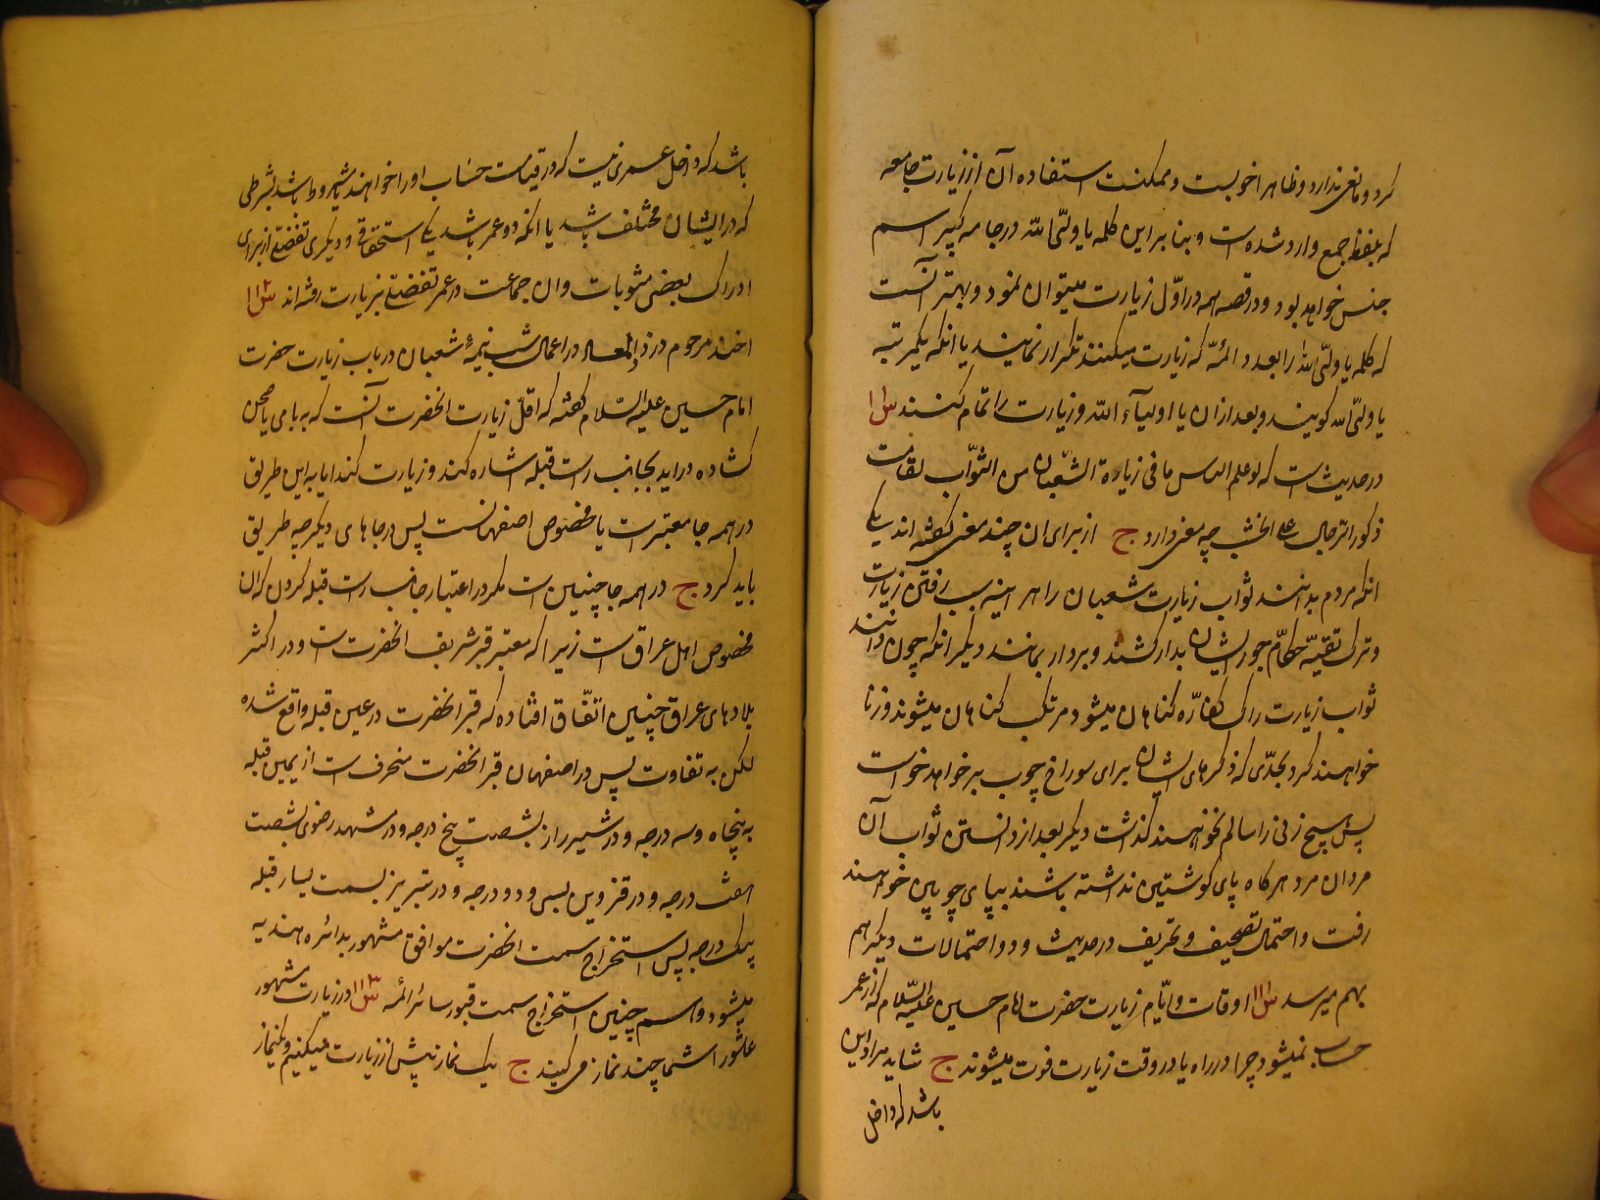 کرد و مانعی ندارد و ظاهرا خوبست و ممکنست استفاده آن از زیارت جامعه
که بلفظ جمع وارد شده است و بنا بر این کلمه یا ولیّ الله در جامه کبیر اسم
جنس خواهد بود و در قصه همه در اوّل زیارت میتوان نمود و بهتر آنست
که کلمه یا ولیّ الله را بعدد ائمّه که زیارت میکنند تکرار نمایند یا انکه یکمرتبه
یا ولیّ الله کویند و بعد از ان یا اولیآء الله و زیارت را تمام کنند س۱۱
در حدیث است که لو علم الناس ما فی زیارة الشعبان من الثوّاب لقامت
ذکور الرجال علی الخشب چه معنی دارد ج از برای ان چند معنی کفته اند یکی
انکه مردم بدانند ثواب زیارت شعبان را هر اینه بسبب رفتن زیارت
و ترک تقیّه حکّام جور ایشان بدار کشند و بر دار بمانند دیکر انکه چون دانند
ثواب زیارت را که کفّاره کناهان میشود مرتکب کناهان میشوند و زنا
خواهند کرد بحدّی که ذکرهای ایشان برای سوراخ چوب بر خواهد خواست
پس هیچ زنی را سالم نخواهند کذاشت دیکر بعد از دانستن ثواب آن
مردان مرد هر کاه پای کوشتین نداشته باشند بپای چوبین خواهند
رفت و احتمال تصحیف و تحریف در حدیث و دو احتمالات دیکر هم
بهم میرسد س۱۱۱ اوقات و ایّام زیارت حضرت امام حسین علیه السّلام که از عمر
حساب نمیشود چرا در راه یا در وقت زیارت فوت میشوند ج شاید مراد این
باشد که داخل
باشد که داخل عمری نیست که در قیامت حساب او را خواهند یا مشروط باشد بشرطی
که در ایشان مختلف باشد یا انکه دو عمر باشد یکی استحقاقی و دیکری تفضّلی از برای
ادراک بعضی مثوبات و ان جماعت در عمر تفضّلی بزیارت رفته اند س۱۱۲
اخند مرحوم در زاد المعاد در اعمال شب نیمه شعبان در باب زیارت حضرت
امام حسین علیه السّلام کفته که اقلّ زیارت انحضرت آنست که به بامی یا صحن
کشاده در اید بجانب راست قبله اشاره کند و زیارت کند ایا به این طریق
در همه جا معتبر است یا مخصوص اصفهانست پس در جاهای دیکر چه طریق
باید کرد ج در همه جا چنین است مکر در اعتبار جانب راست قبله کردن که ان
مخصوص اهل عراق است زیرا که معتبر قبر شریف انحضرت است و در اکثر
بلادهای عراق چنین اتفّاق افتاده که قبر انحضرت در عین قبله واقع شده
لکن به تفاوت پس در اصفهان قبر انحضرت منحرف است از یمین قبله
به پنجاه و سه درجه و در شیراز بشصت پنج درجه و در مشهد رضوی بشصت
هفت درجه و در قزوین بسی و دو درجه و در تبریز بسمت یسار قبله
بیک درجه پس استخراج سمت انحضرت موافق مشهور بدائره هندیه
میشود و اسم چنین استخراج سمت قبور سائر ائمّه س۱۱۳ در زیارت مشهور
عاشورا شما چند نماز می کنید ج یک نماز پیش از زیارت میکنیم و یکنماز